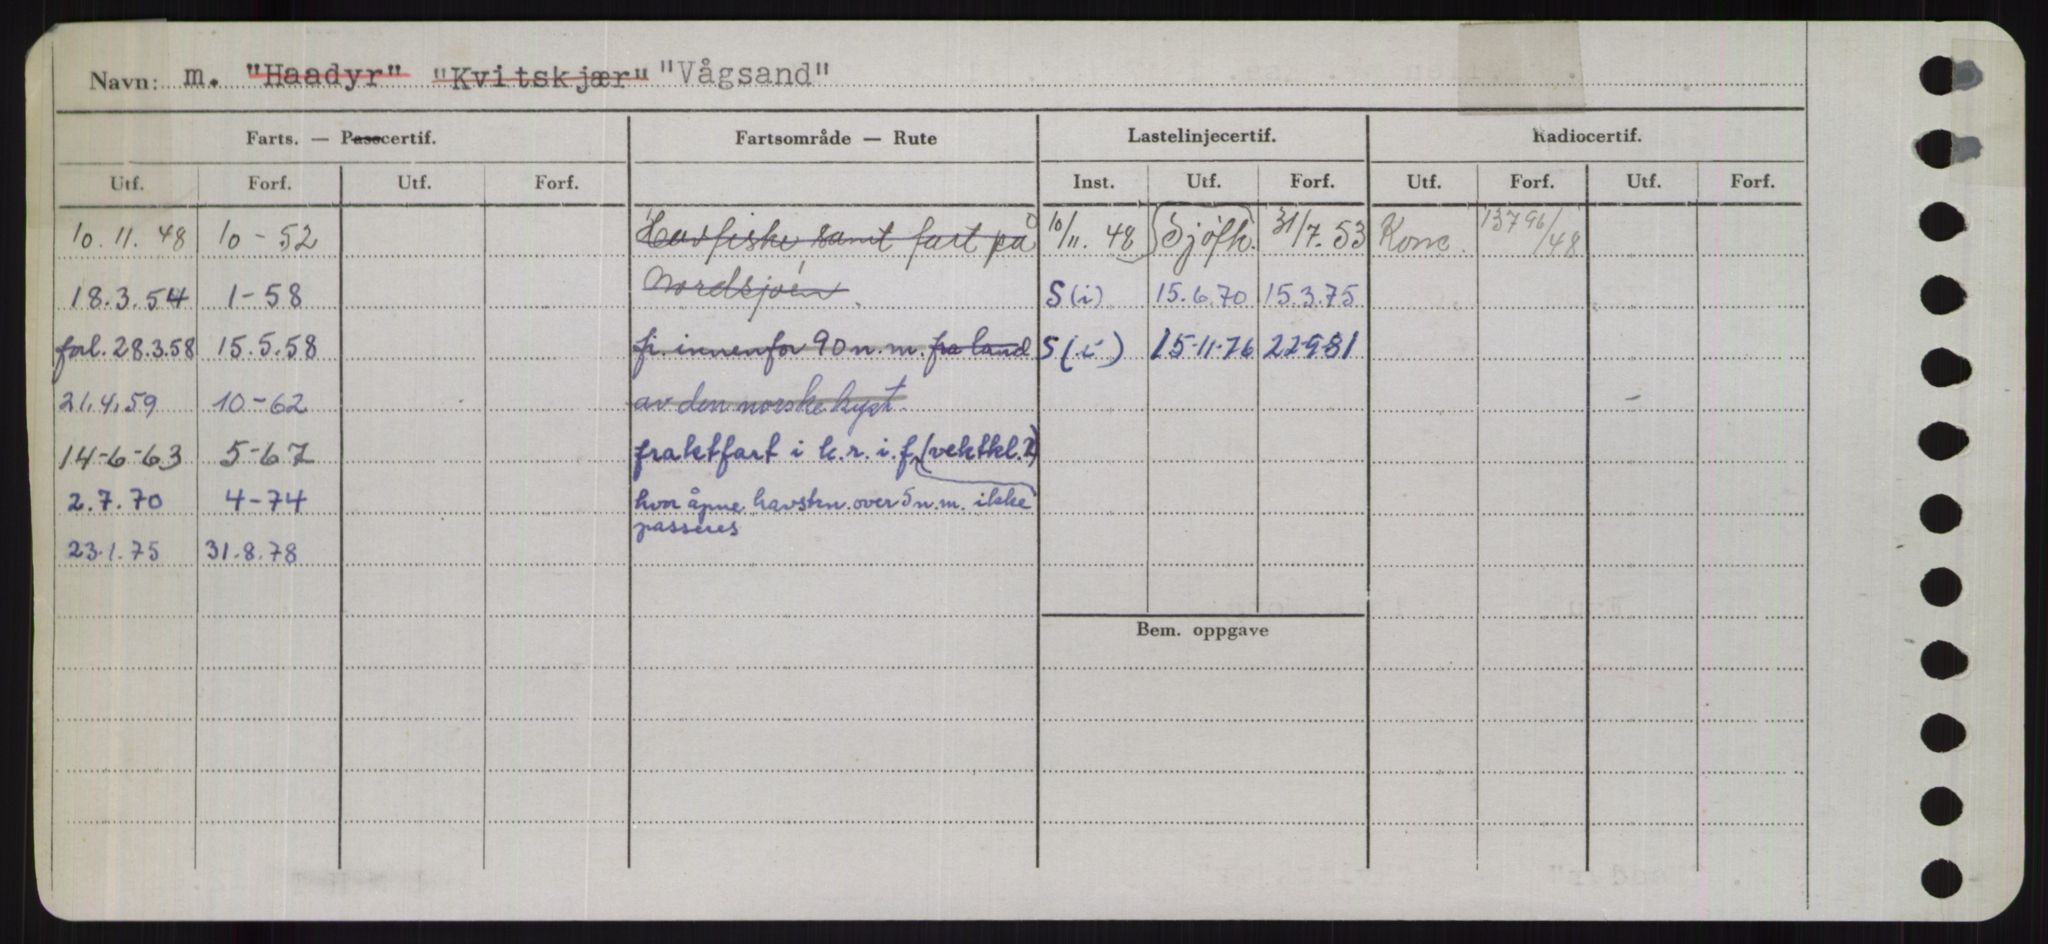 Navn: m. "Haadyr" "Kvitskjær" "Vågsand"
Farts. — Passcertif. Fartsområde — Rute Lastelinjecertif. Radiocertif.
Utf. Forf. Utf. Forf. Inst. Utf. Forf. Utf. Forf. Utf. Forf.
10.11.48 10-52 Havfiske samt fart på 10/11.48 Sjøfk. 31/7.53 Konc. 13796/48
18.3.54 1-58 Nordsjøen. S(i) 15.6.70 15.3.75
forl.28.3.58 15.5.58 fi. innenfor 90 n.m. fra land S(i) 15-11-76 22981
21.4.59 10-62 av den norske kyst.
14-6-63 5-67 fraktfart i k.r.i.f. (vektkl.2)
2.7.70 4-74 hvor åpne havstrn. over 5 n.m. ikke
passeres
23.1.75 31.8.78
Bem. oppgave